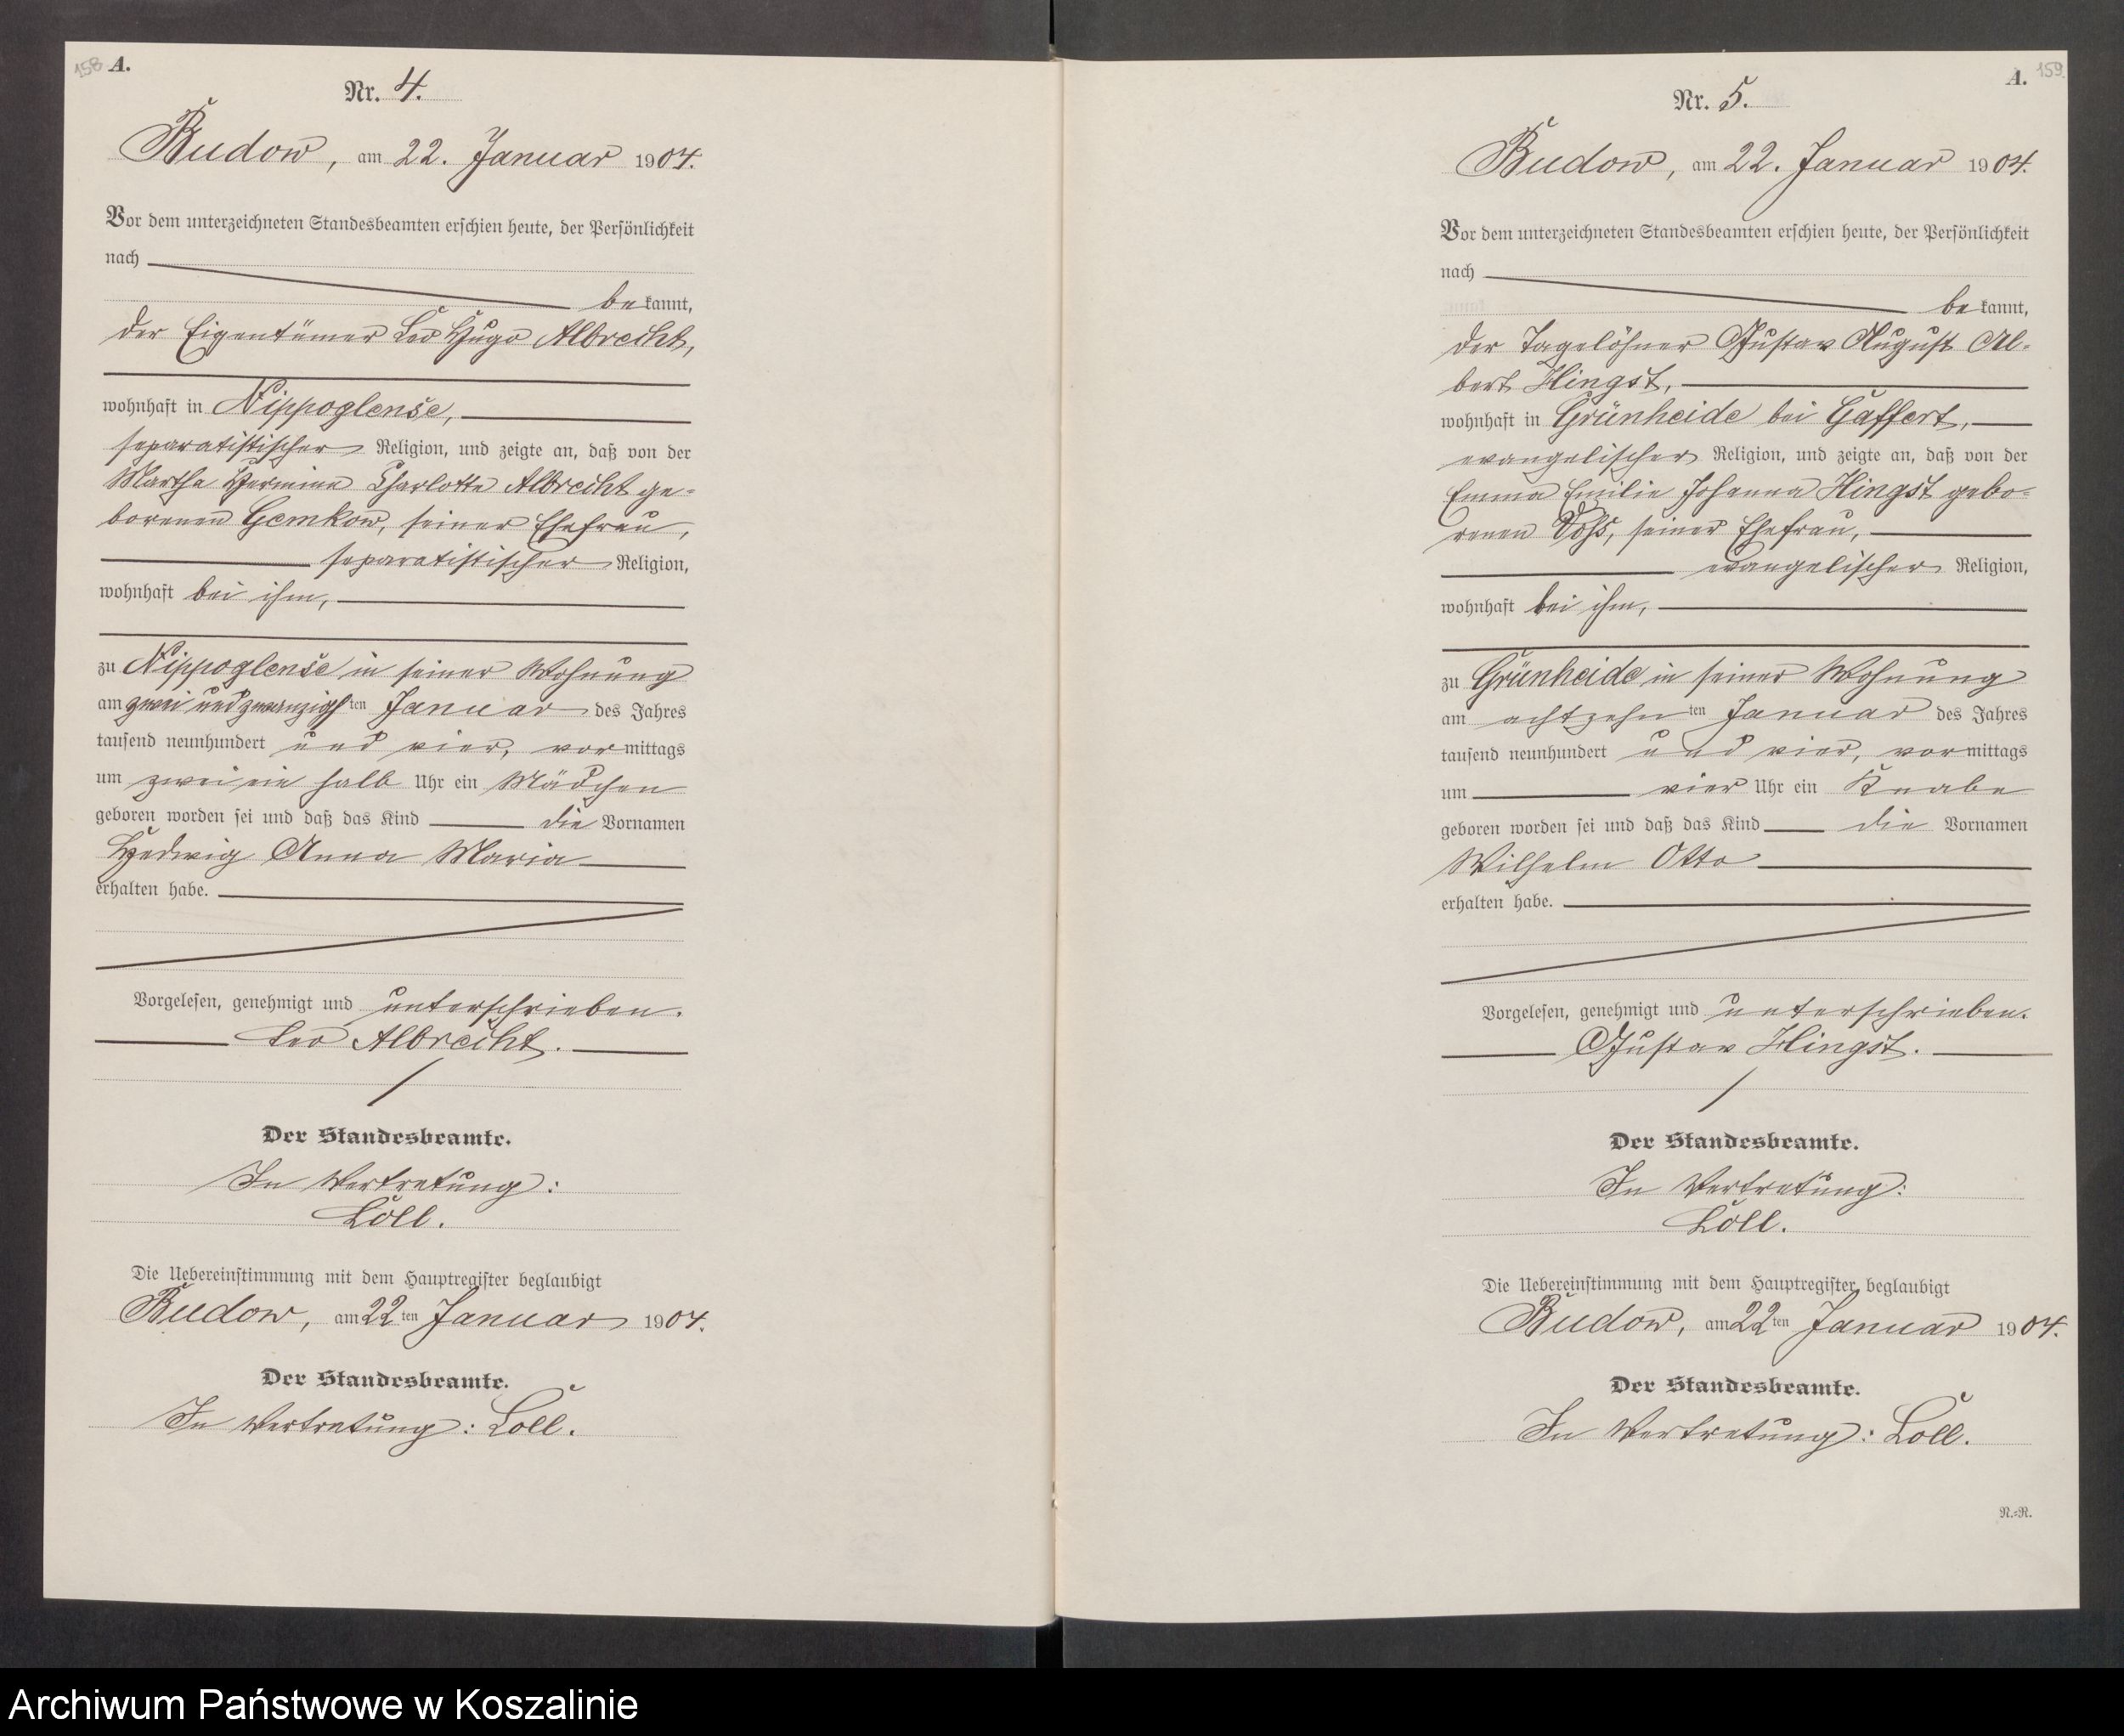 158 A.
Nr. 4.
Budow, am 22. Januar 1904.
Vor dem unterzeichneten Standesbeamten erschien heute, der Persönlichkeit
nach
bekannt,
der Eigentümer Leo Hugo Albrecht,
wohnhaft in Nippoglense,
separatistischer Religion, und zeigte an, daß von der
Martha Hermine Charlotte Albrecht ge-
borenen Gemkow, seiner Ehefrau,
separatistischer Religion,
wohnhaft bei ihm,
zu Nippoglense in seiner Wohnung
am zwei und zwanzigsten Januar des Jahres
tausend neunhundert und vier, vormittags
um zwei ein halb Uhr ein Mädchen
geboren worden sei und daß das Kind die Vornamen
Hedwig Anna Maria
erhalten habe.
Vorgelesen, genehmigt und unterschrieben.
Leo Albrecht.
Der Standesbeamte.
In Vertretung:
Loll.
Die Uebereinstimmung mit dem Hauptregister beglaubigt
Budow, am 22ten Januar 1904.
Der Standesbeamte.
In Vertretung: Loll.
A. 159
Nr. 5.
Budow, am 22. Januar 1904.
Vor dem unterzeichneten Standesbeamten erschien heute, der Persönlichkeit
nach
bekannt,
der Tagelöhner Gustav August Al-
bert Hingst,
wohnhaft in Grünheide bei Gaffert,
evangelischer Religion, und zeigte an, daß von der
Emma Emilie Johanna Hingst gebo-
renen Voß, seiner Ehefrau,
evangelischer Religion,
wohnhaft bei ihm,
zu Grünheide in seiner Wohnung
am achtzehnten Januar des Jahres
tausend neunhundert und vier, vormittags
um vier Uhr ein Knabe
geboren worden sei und daß das Kind die Vornamen
Wilhelm Otto
erhalten habe.
Vorgelesen, genehmigt und unterschrieben.
Gustav Hingst.
Der Standesbeamte.
In Vertretung:
Loll.
Die Uebereinstimmung mit dem Hauptregister beglaubigt
Budow, am 22ten Januar 1904.
Der Standesbeamte.
In Vertretung: Loll.
N.=R.
Archiwum Państwowe w Koszalinie